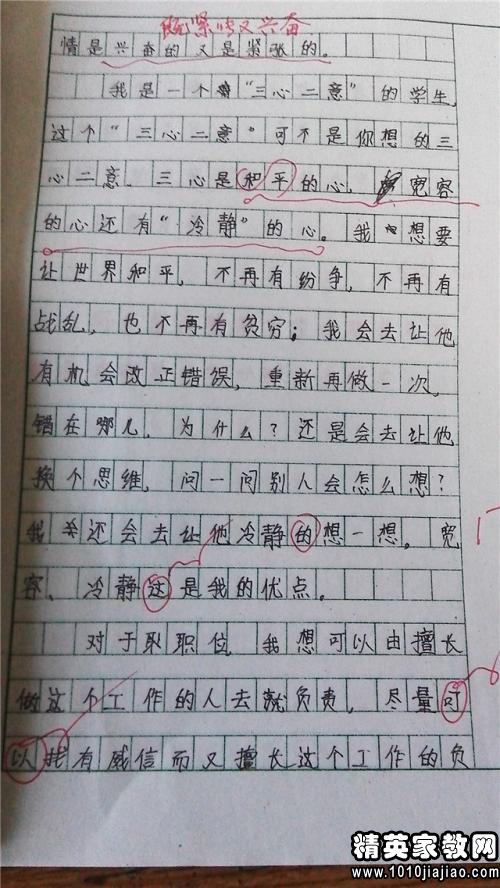 既紧张又兴奋
情是兴奋的又是紧张的。
我是一个"三心二意"的学生,
这个"三心二意"可不是你想的三
心二意。三心是和平的心,宽容
的心还有"冷静"的心。我想要
让世界和平,不再有纷争,不再有
战乱,也不再有贫穷;我会去让他
有机会改正错误,重新再做一次。
错在哪儿,为什么?还是会去让他
换个思维,问一问别人会怎么想?
我还会去让他冷静的想一想。宽
容、冷静这是我的优点。
对于职位,我想可以由擅长
做这个工作的人去就负责,尽量可
以找有威信而又擅长这个工作的负
精英家教网
www.1010jiajiao.com